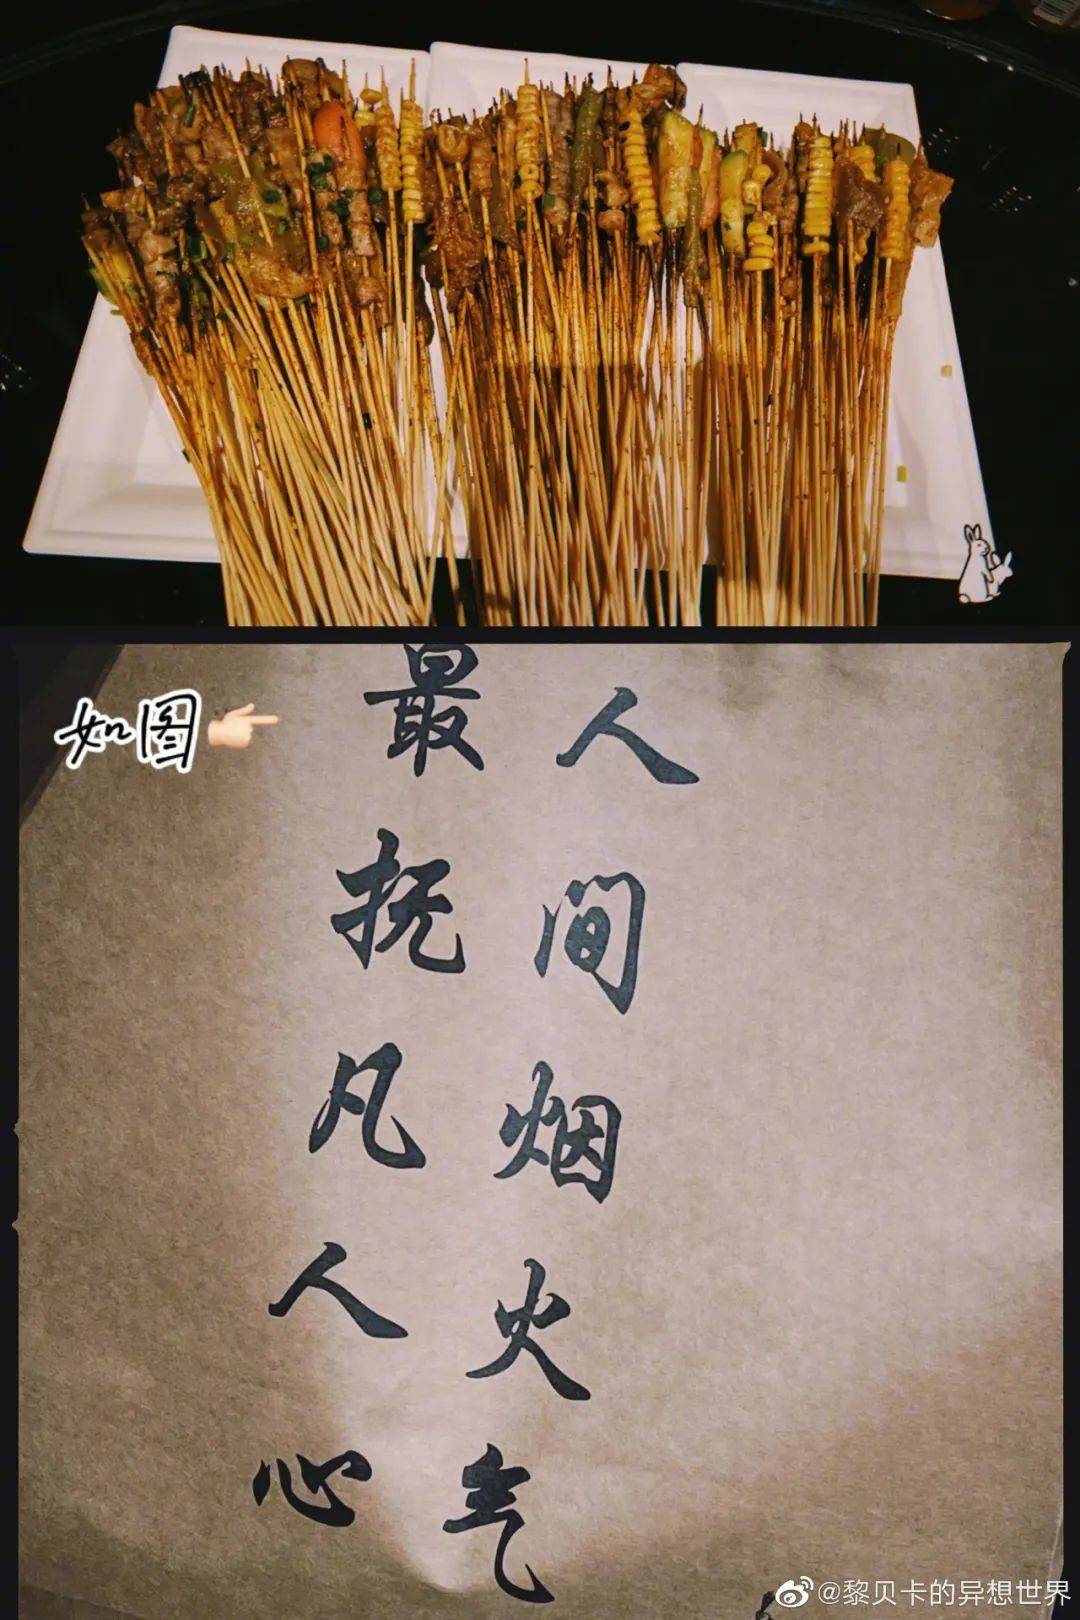 如图
人间烟火气
最抚凡人心
@黎贝卡的异想世界